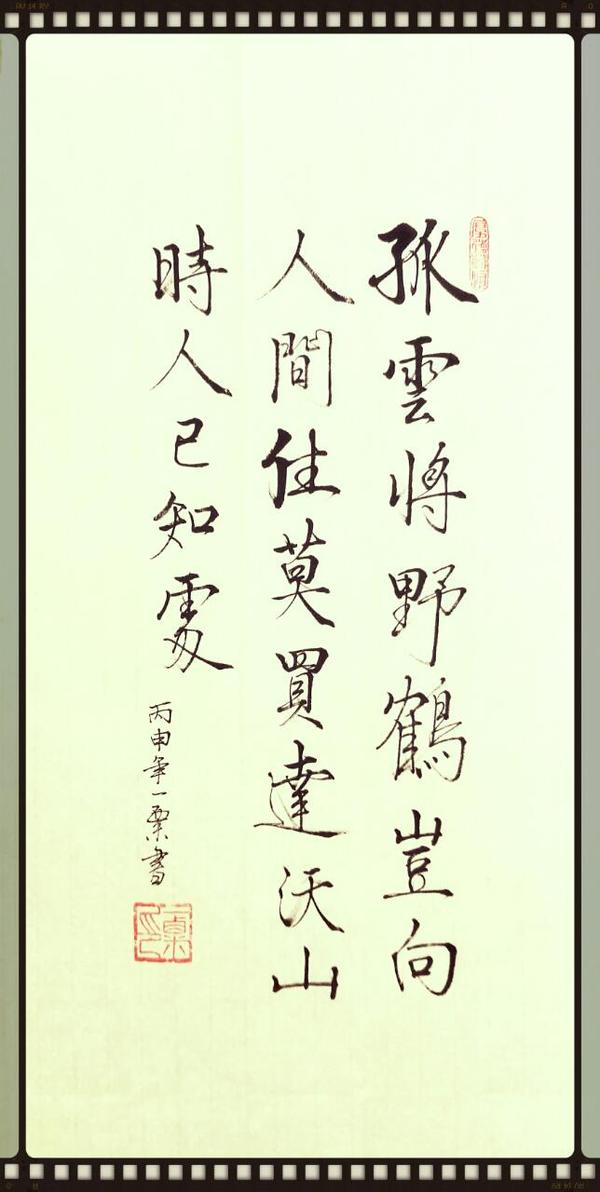 孤雲將野鶴豈向
人間住莫買達沃山
時人已知處
丙申年一粟書